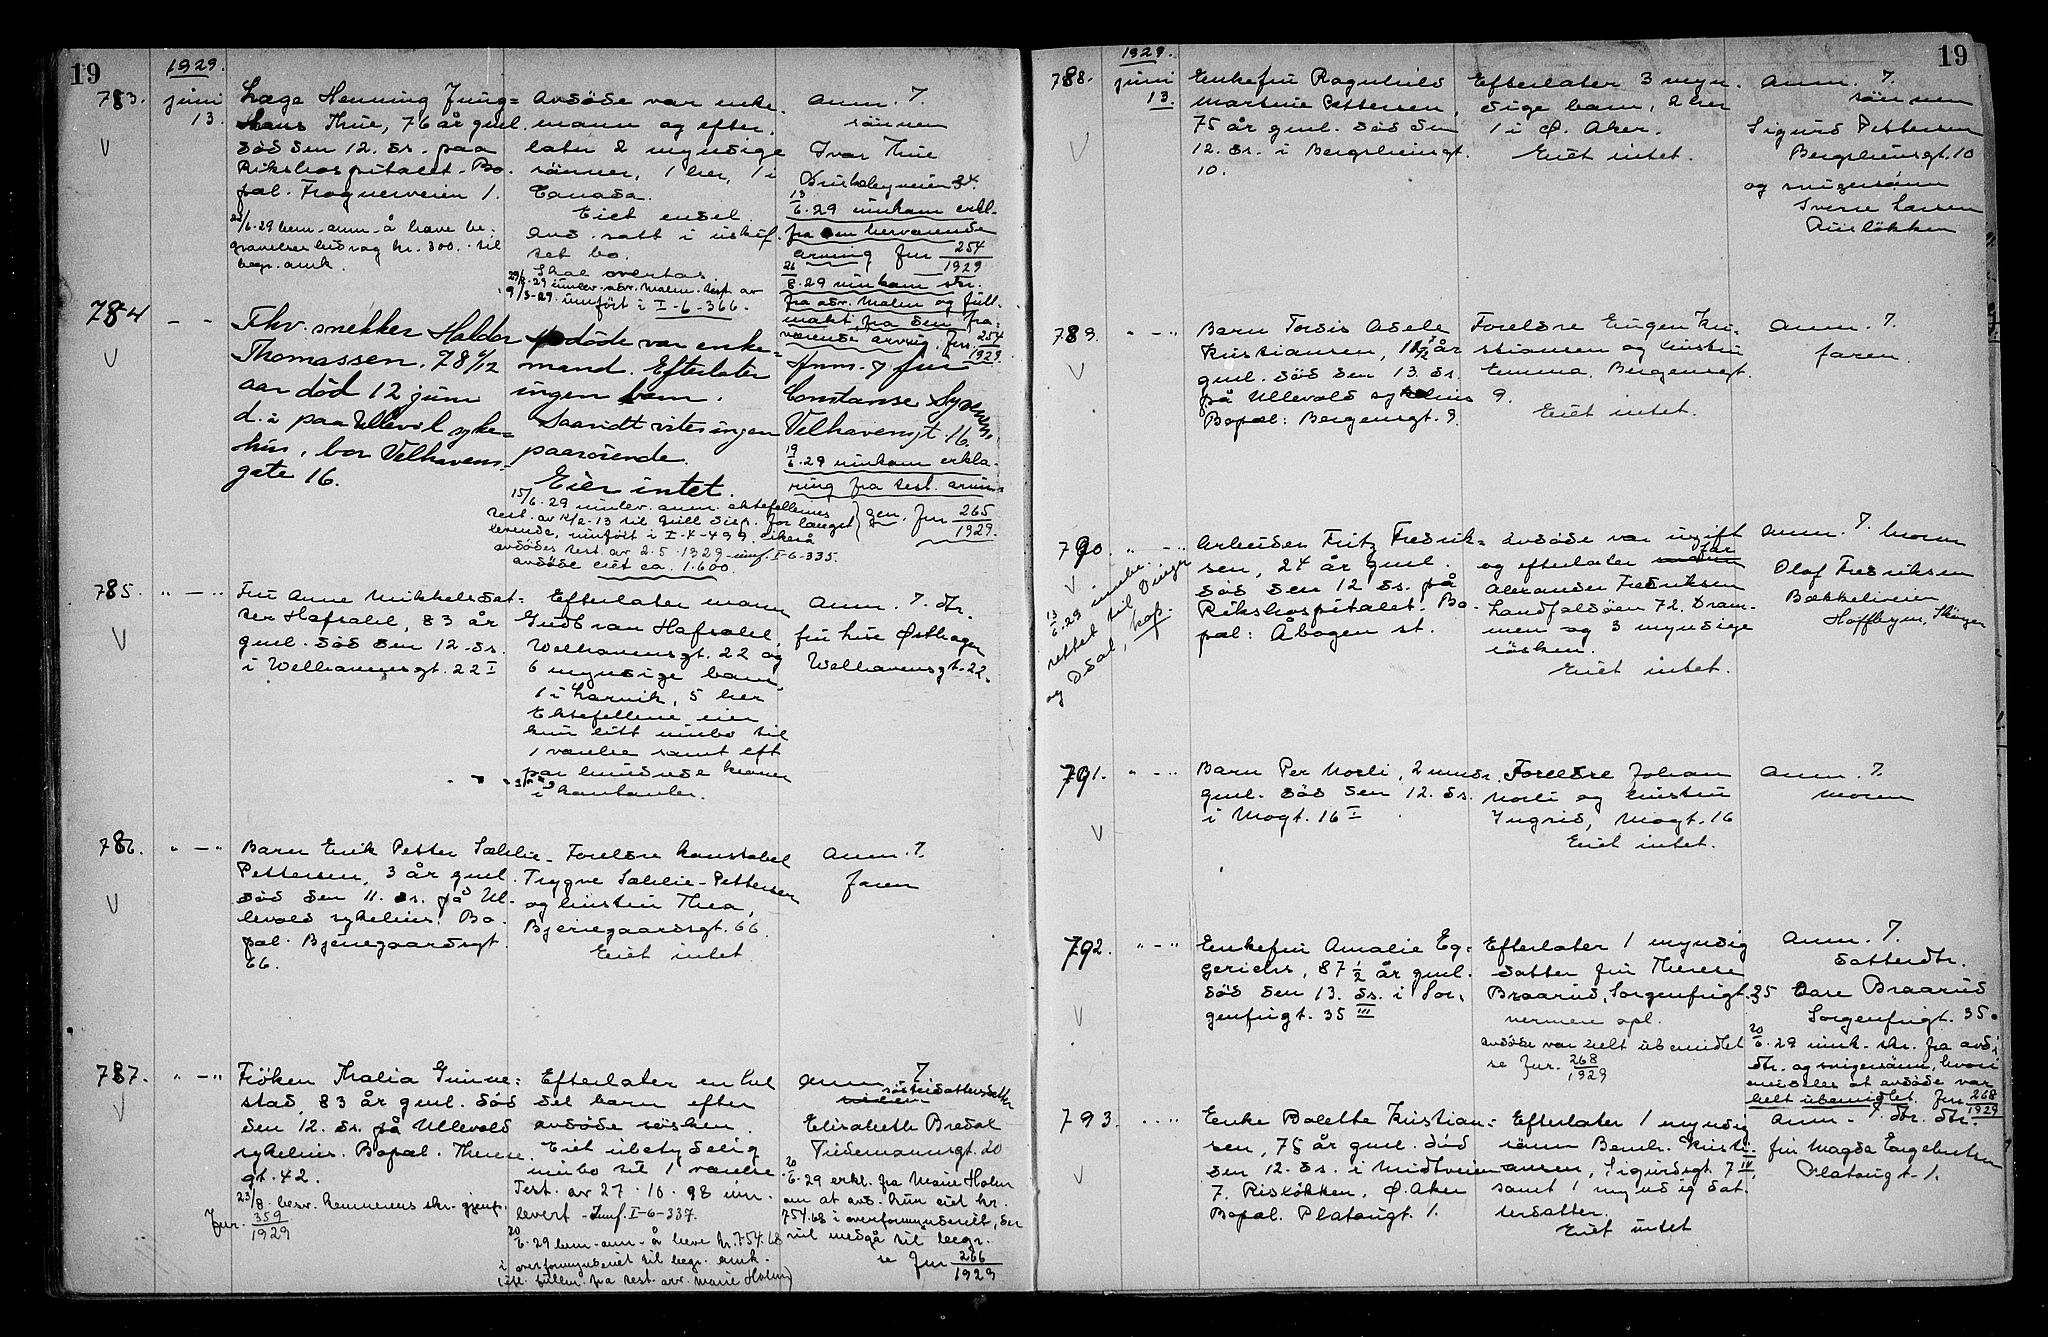 19
1929.
783. juni 13.
Læge Henning Jung=
hans Thue, 76 år gml.
död den 12. ds. paa
Rikshospitalet. Bo.
pæl. Frognerveien 1.
25/6.29 bem. anm. å have be-
gravelsesbidrag kr. 300. til
begr. omk.
Avdöde var enke.
mann og efter.
later 2 myndige
sönner, 1 her, 1 i
Canada.
Eiet endel.
Avd. satt i uskif.
tet bo.
Skal overtas.
29/6.29 innlev. adv. Malm. test. av
9/3-29. innfört i I-6-366.
Anm. 7.
sönnen
Ivar Thue
34.
13/6.29 innkom erkl.
fra den herværende
arving Jnr 254/1929
26/8.29 innkom skr.
fra adv. Malm og full-
makt fra den fra-
værende arving. Jnr. 254/1929
784 - -
Fhv. snekker Haldor
Thomassen. 78 6/12
aar död 12 juni
d. i paa Ullevål syke=
hus, bor Velhavens-
gate 16.
döde var enke-
mand. Efterlater
ingen barn.
Saavidt vites ingen
paarörende.
Eier intet.
15/6.29 innlev. anm. ektefellenes
test. av 12/2-13 til den
levende, innført i I-4-499, likeså
avdødes test. av 2.5.1929 innf. I-6-335.
avdöde eiet ca. 1.600.
Anm. 7 fru
Constanse
Velhavensgt. 16.
19/6.29 innkom erklæ-
ring fra test. arvin-
gen. Jnr 265/1929.
785. " - "
Fru Anne Mikkelsdat-
ter Hafsahl, 83 år
gml. död den 12. ds.
i Welhavensgt. 22 I
Efterlater mann
Gudbran Hafsahl,
Welhavensgt. 22 og
6 myndige barn,
1 i Larvik, 5 her
Ektefellene eier
kun litt innbo til
1 værelse samt ett
par hundrede kroner
i kontanter.
Anm. 7. dtr.
fru Lise Østhagen
Welhavensgt. 22.
786. " - "
Barn Erik Petter Sæhlie-
Pettersen, 3 år gml.
död den 11. ds. på Ul-
levold sykehus. Bo-
pæl. Bjerregaardsgt.
66.
Foreldre konstabel
Trygve Sæhlie-Pettersen
og hustru Thea,
Bjerregaardsgt. 66.
Eiet intet.
Anm. 7.
faren
787. " - "
Fröken Thalia Gunne=
stad, 83 år gml. död
den 12. ds. på Ullevold
sykehus. Bopæl. Therese
gt. 42.
23/8. besv. kemnerens skr. gjenp.
Jnr. 359/1929
Efterlater en hel
del barn efter
avdöde sösken.
Eiet ubetydelig
innbo til 1 værelse
Test. av 27.10.98 inn.
levert - Innf. I-6-337.
20/6.29 bem. anm. å heve kr. 754.68
i overformynderiet til begr. omk.
(efl. fullm. fra test. arv. Marie Holm)
Anm 7
södsterdattersdatter
Elisabeth Bredal
Tidemannsgt. 20
20/6.29 erkl. fra Marie Holm
om at avd. kun eiet kr.
754.68 i overformynderiet, der
vil medgå til begr.
se Jnr 266/1929
19
1929.
788. juni 13.
Enkefru Ragnhild
Martine Pettersen,
75 år gml. död den
12. ds. i Bergslensgt.
10.
Efterlater 3 myn.
dige barn, 2 her
1 i Ø. Aker.
Eiet intet.
Anm. 7.
sönnen
Sigurd Pettersen
Bergsliensgt. 10
og svigersönn
Sverre Larsen
Risløkken
789. " - "
Barn Tordis Adele
Kristiansen, 1 1/2 år
gml. död den 13. ds.
på Ullevold sykehus
Bopæl: Bergensgt. 9.
Foreldre Eugen Kri-
stiansen og hustru
Emma. Bergensgt.
9.
Eiet intet.
Anm. 7.
faren.
790. " - "
13/6.29 innbe-
rettet til Vinger
og Odal, kop.
Arbeider Fritz Fredrik=
sen, 24 år gml.
död den 12. ds. på
Rikshospitalet. Bo-
pæl: Åbogen st.
Avdöde var ugift
og efterlater far
Alexander Fredriksen
Landfaldöen 72, Dram-
men og 3 myndige
sösken.
Eiet intet.
Anm. 7. broren
Olaf Fredriksen
Bækkeliveien
791. " - "
Barn Per Morli, 2 mndr.
gml. död den 12. ds.
i Mogt. 16 I
Foreldre Johan
Morli og hustru
Ingrid, Mogt. 16
Eiet intet.
Anm. 7.
moren
792. " - "
Enkefru Amalie Eg-
gerichs, 87 1/2 år gml.
död den 13. ds. i Sor-
genfrigt. 35 III
Efterlater 1 myndig
datter fru Therese
Braarud, Sorgenfrigt. 35
nermere opl.
avdöde var helt ubemidlet
se Jnr. 268/1929
Anm. 7.
datterdtr.
Braarud
Sorgenfrigt. 35.
20/6.29 innk. skr. fra avd.
dtr. og svigersönn, hvori
meddeles at avdöde var
helt ubemidlet. Jnr 268/1929
793. " "
Enke Balette Kristian=
sen, 75 år gml. död
den 12. ds. i Midtveien
7. Risløkken, Ø. Aker
Bopæl. Platougt. 1.
Efterlater 1 myndig
sönn Bernh. Kristi-
ansen, Sigurdsgt. 7 IV,
samt 1 myndig dat.
terdatter.
Eiet intet
Anm. 7 dtr. dtr.
fru Magda Engebretsen
Platougt. 1.